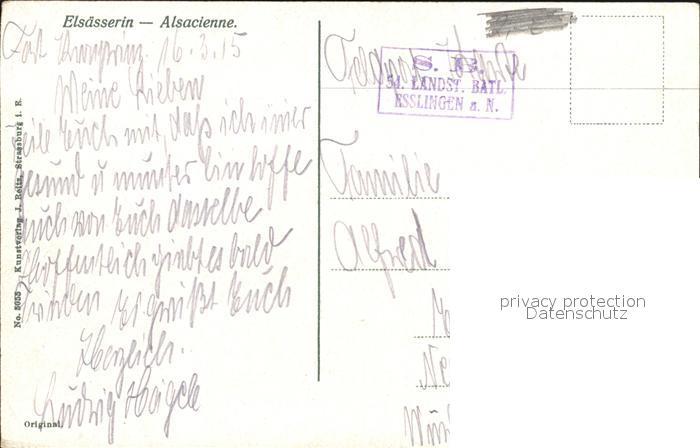 Elsässerin — Alsacienne.
Fort Kronprinz. 16.3.15
Meine Lieben
Teile Euch mit, daß ich imer
gesund u munter bin hoffe
auch von Euch dasselbe
Hoffentlich giebt es bald
Frieden Es grüßt Euch
Herzlich.
Ludwig
No. 3055 Kunstverlag J. Reitz, Strassburg i. E.
Original.
Feldpost
S. B.
51. LANDST. BATL.
ESSLINGEN a. N.
Familie
Alfred
privacy protection
Datenschutz